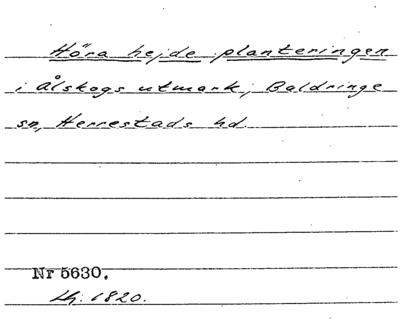 Höra hejde planteringen
i Ålskogs utmark, Baldringe
sn, Herrestads hd.
Nr 5630.
1820.